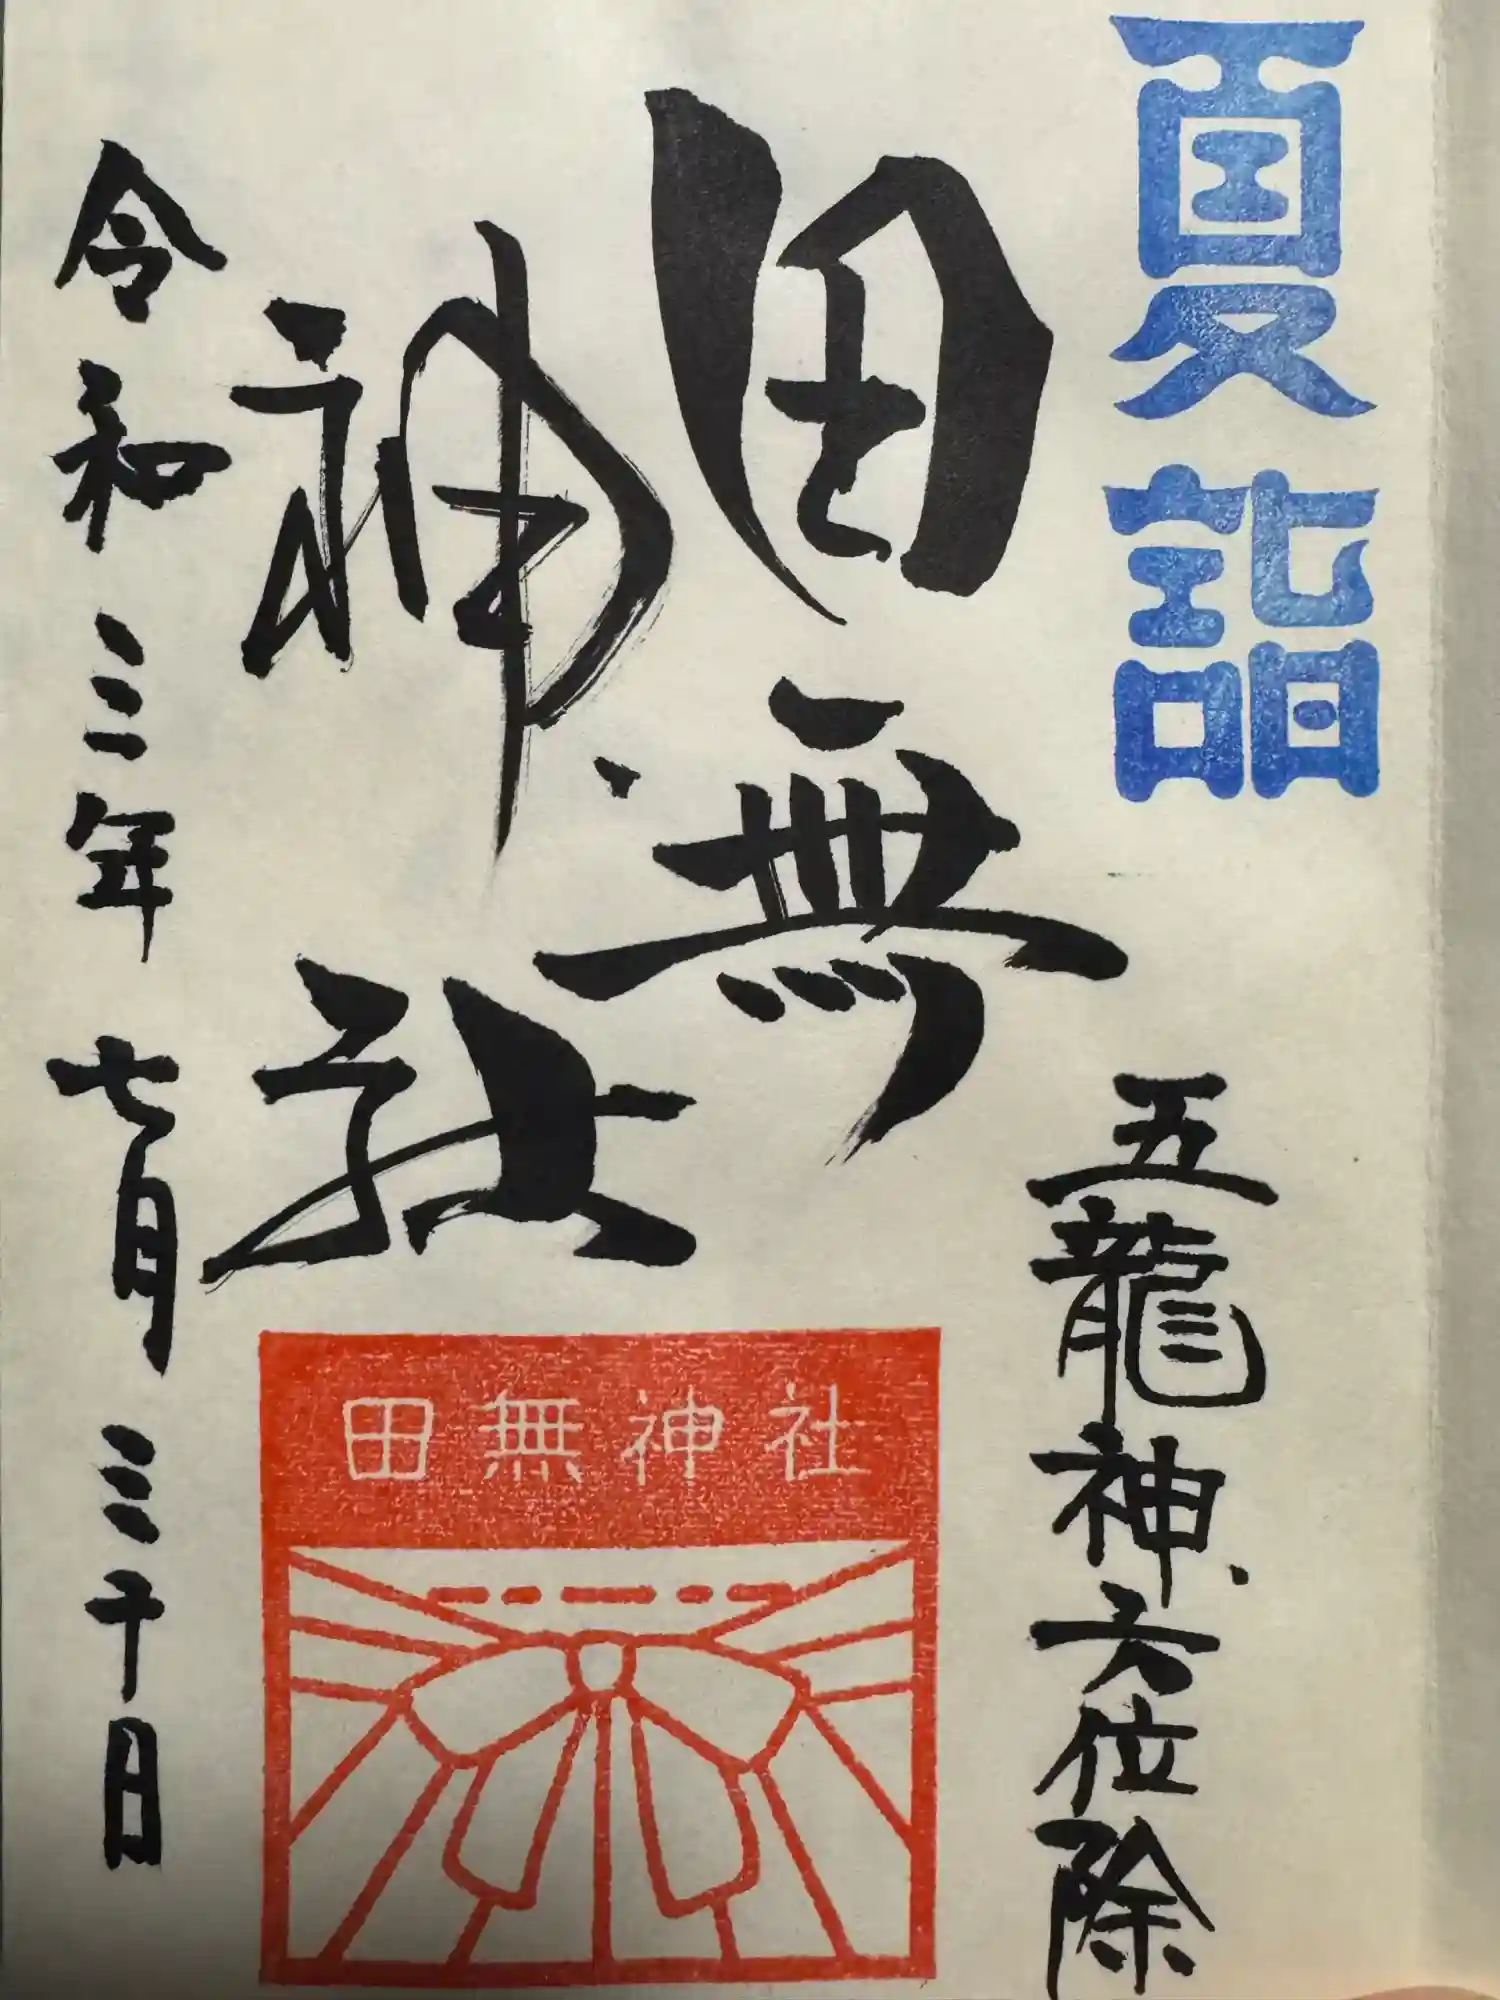 夏詣
五龍神六位除
田無
神社
田無神社
令和三年七月三十日